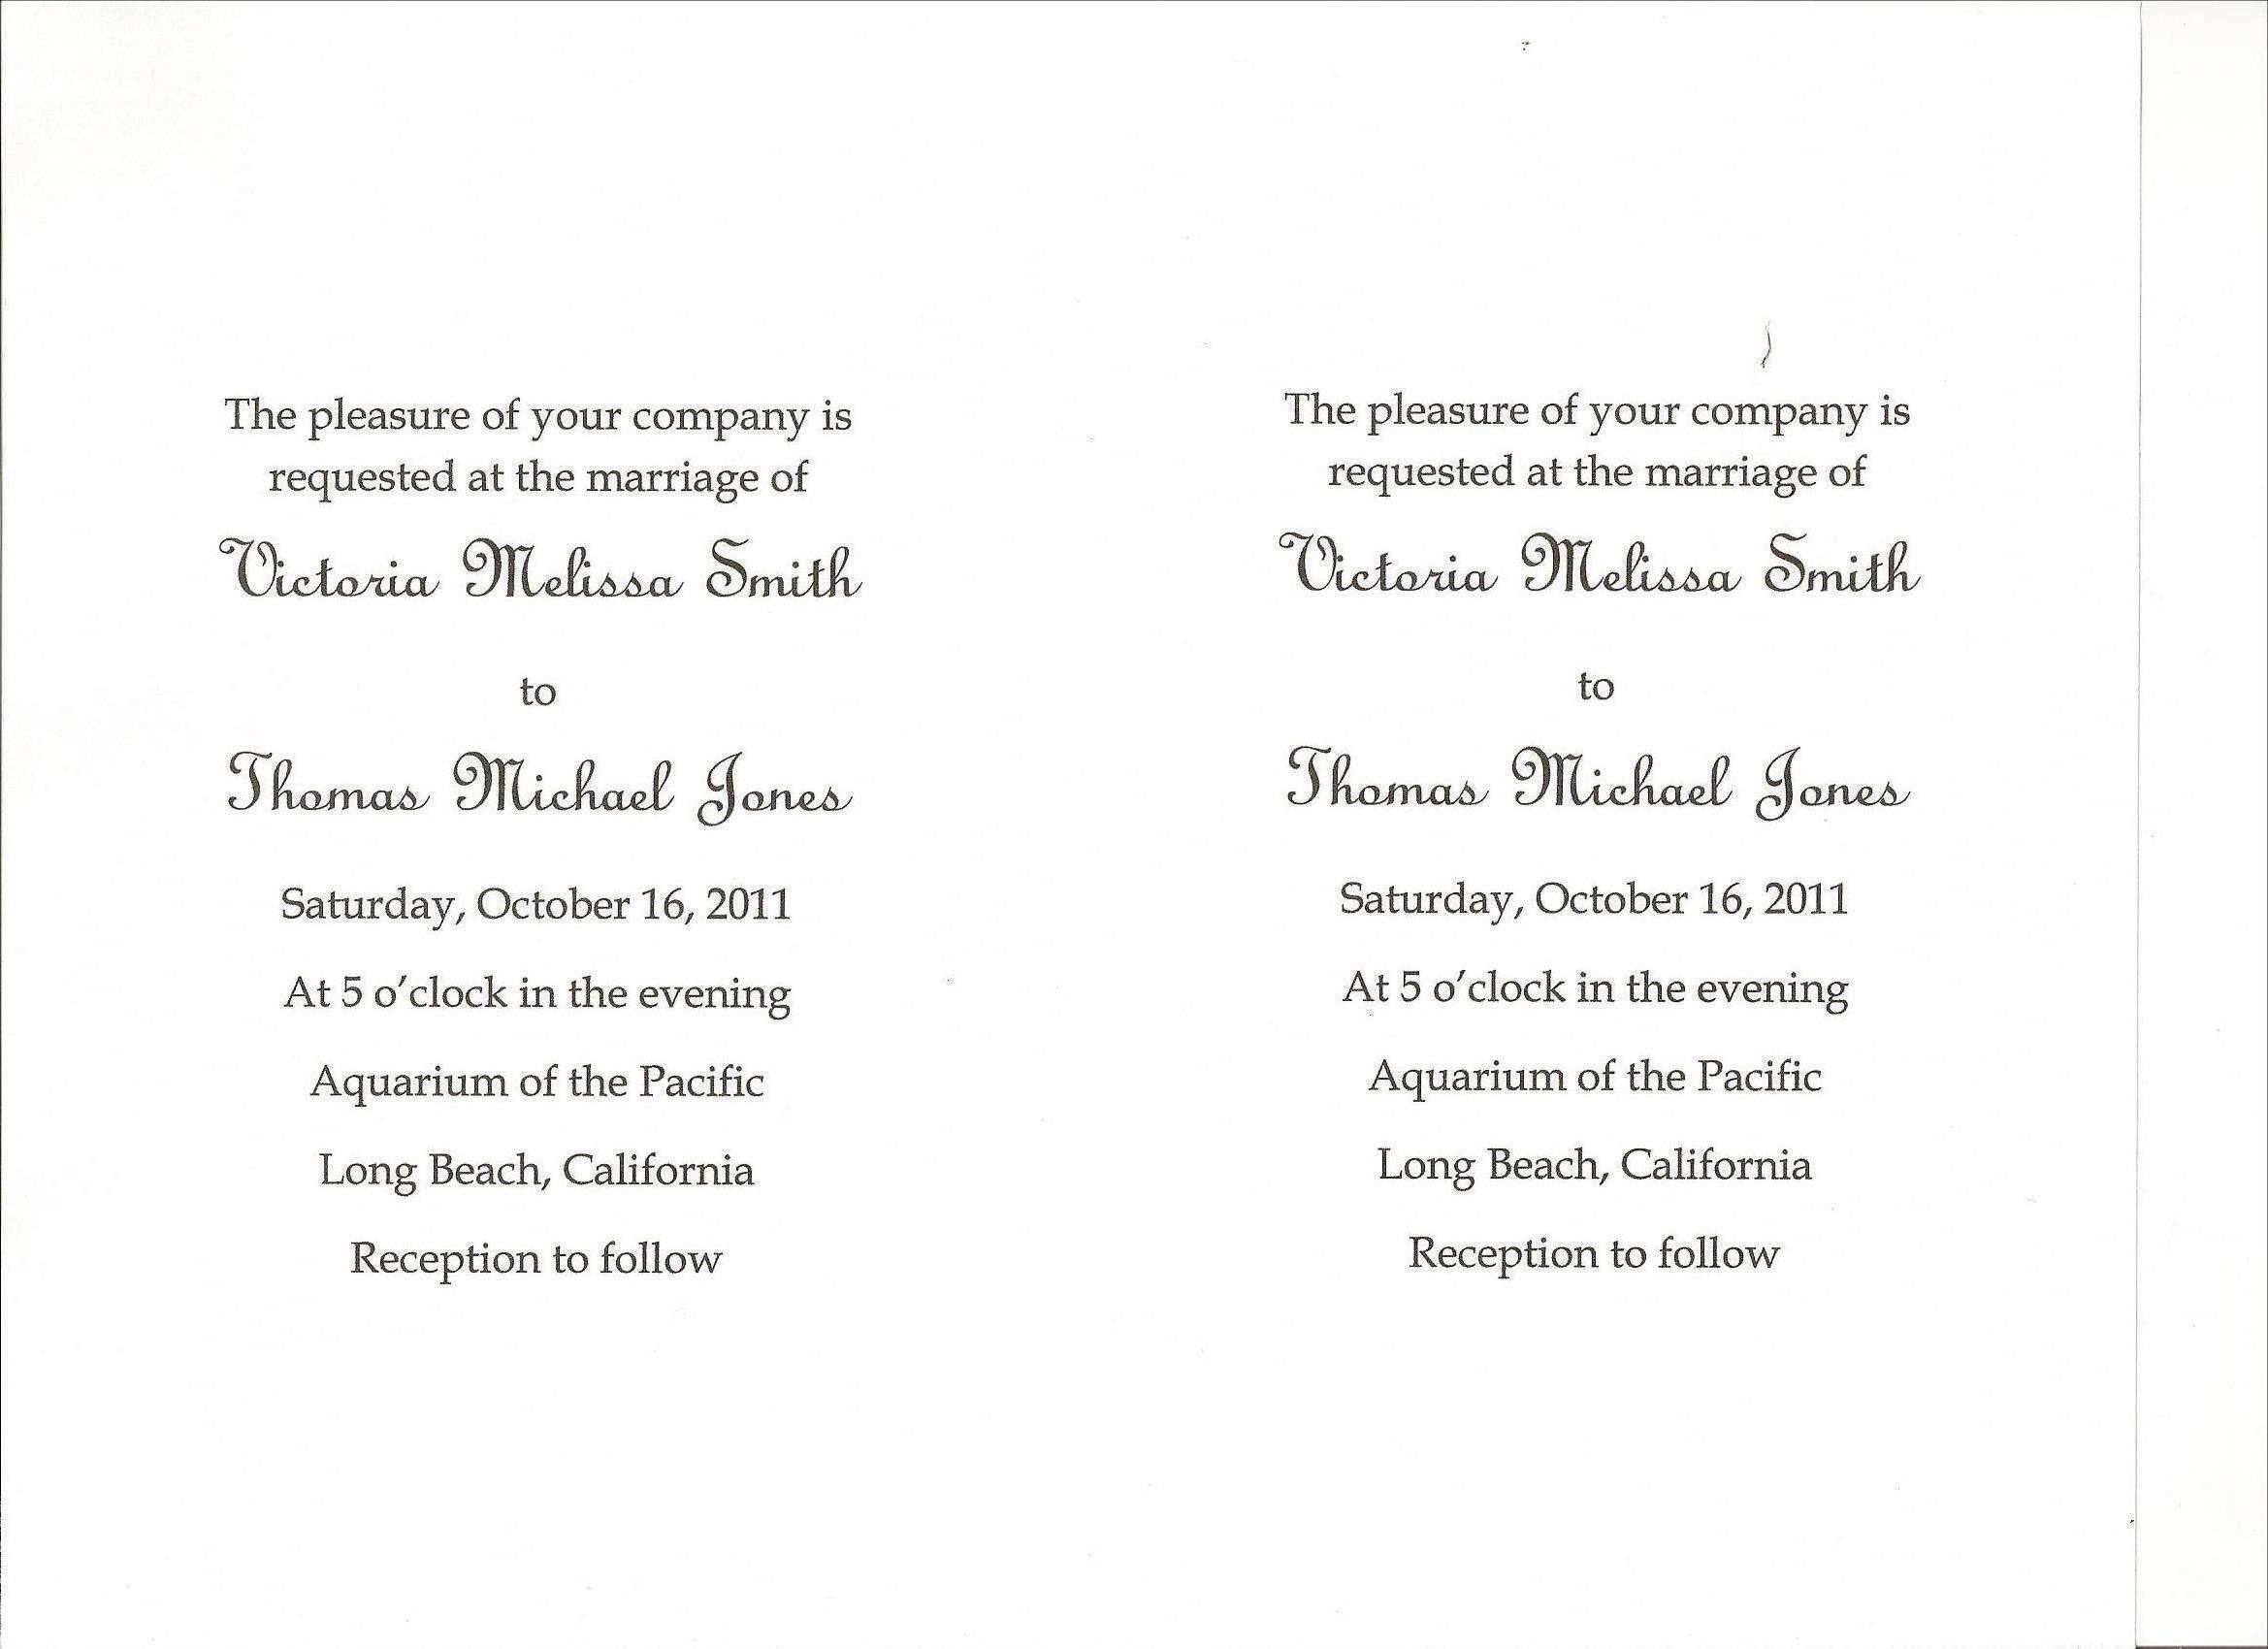 The pleasure of your company is
requested at the marriage of
Victoria Melissa Smith
to
Thomas Michael Jones
Saturday, October 16, 2011
At 5 o'clock in the evening
Aquarium of the Pacific
Long Beach, California
Reception to follow
The pleasure of your company is
requested at the marriage of
Victoria Melissa Smith
to
Thomas Michael Jones
Saturday, October 16, 2011
At 5 o'clock in the evening
Aquarium of the Pacific
Long Beach, California
Reception to follow